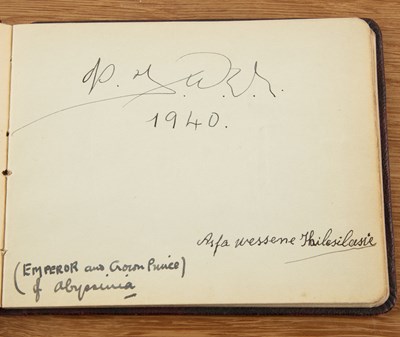 1940.
Asfa wessene Hailesilasie
(EMPEROR and Crown Prince)
of Abyssinia